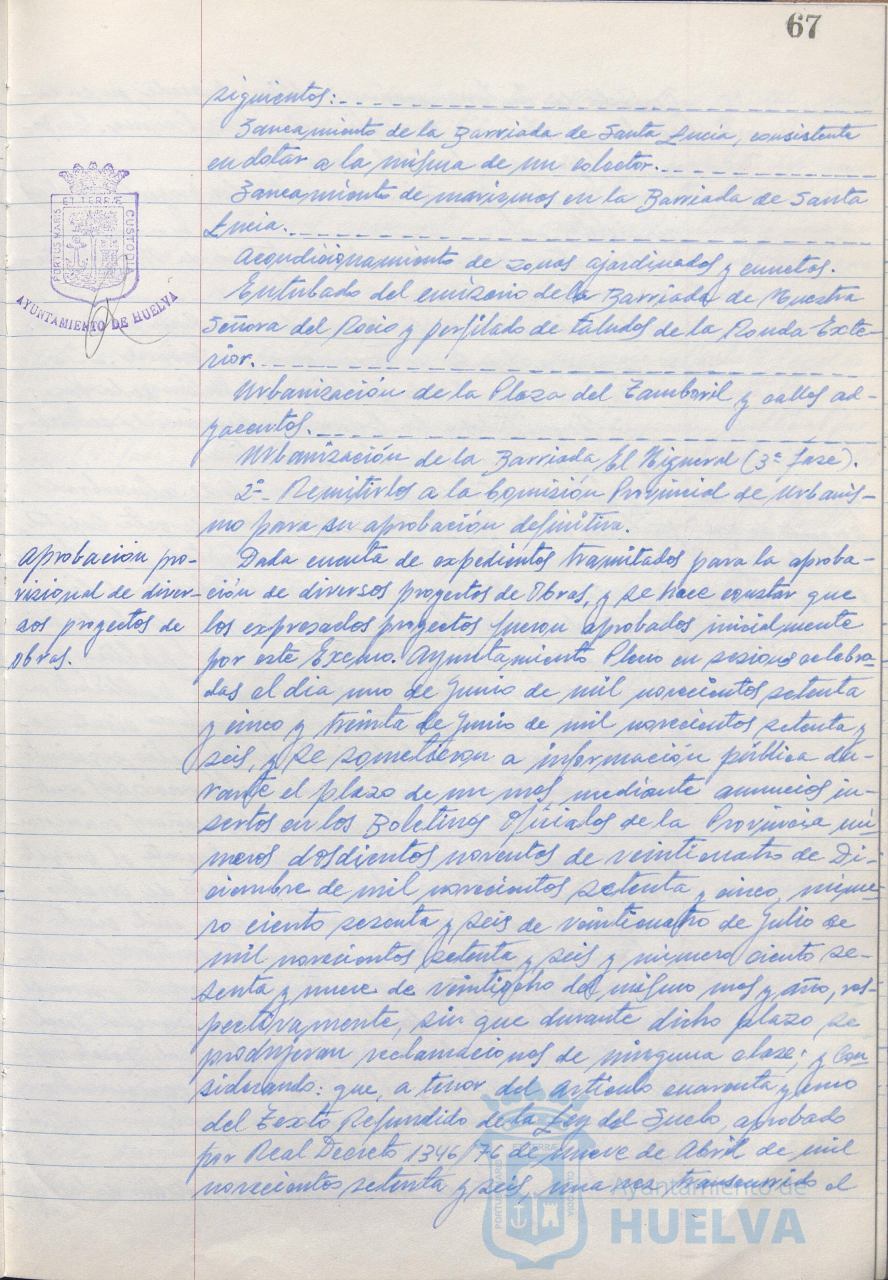 67
siguientes:
Saneamiento de la Barriada de Santa Lucia, consistente
en dotar a la misma de un colector.
Saneamiento de marismas en la Barriada de Santa
Lucia.
Acondicionamiento de zonas ajardinadas y cunetas.
Entubado del emisario de la Barriada de Nuestra
Señora del Rocio y perfilado de taludes de la Ronda Exte-
rior.
Urbanización de la Plaza del Tamboril y calles ad-
yacentes.
Urbanización de la Barriada El Higueral (3ª fase).
2º- Remitirlos a la Comisión Provincial de Urbanis-
mo para su aprobación definitiva.
Aprobación pro-
visional de diver-
sos proyectos de
obras.
Dada cuenta de expedientes tramitados para la aproba-
ción de diversos proyectos de Obras, y se hace constar que
los expresados proyectos fueron aprobados inicialmente
por este Excmo. Ayuntamiento Pleno en sesiones celebra-
das el dia uno de Junio de mil novecientos setenta
y cinco y treinta de Junio de mil novecientos setenta y
seis, y se sometieron a información pública du-
rante el plazo de un mes mediante anuncios in-
sertos en los Boletines Oficiales de la Provincia nú-
meros dosdientos noventos de veinticuatro de Di-
ciembre de mil novecientos setenta y cinco, núme-
ro ciento sesenta y seis de veinticuatro de Julio de
mil novecientos setenta y seis y número ciento se-
senta y nueve de veintiocho del mismo mes y año, res-
pectivamente, sin que durante dicho plazo se
produjeran reclamaciones de ninguna clase; y Con-
siderando: que, a tenor del articulo cuarenta y uno
del Texto Refundido de la Ley del Suelo, aprobado
por Real Decreto 1346/76 de nueve de Abril de mil
novecientos setenta y seis, una vez transcurrido el
PORTUS MARIS ET TERRÆ CUSTODIA
AYUNTAMIENTO DE HUELVA
Ayuntamiento de
HUELVA